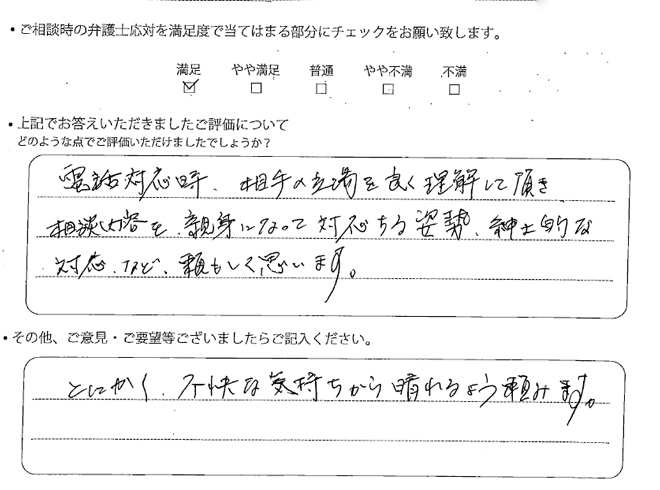 ・ご相談時の弁護士応対を満足度で当てはまる部分にチェックをお願い致します。
満足 やや満足 普通 やや不満 不満
・上記でお答えいただきましたご評価について
どのような点でご評価いただけましたでしょうか？
電話対応時、相手の立場を良く理解して頂き
相談内容を、親身になって対応する姿勢、紳士的な
対応、など、頼もしく思います。
・その他、ご意見・ご要望等ございましたらご記入ください。
とにかく、不快な気持ちから晴れるよう頼みます。